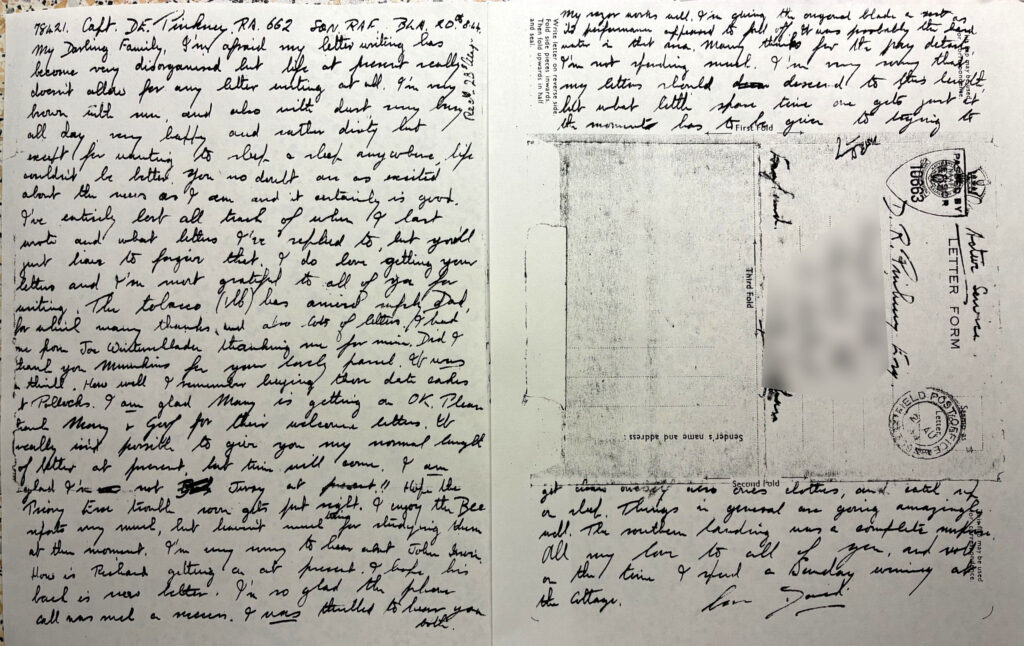 78421. Capt. D.E. Pinkney. R.A. 662 SQN. RAF. BLA. 20th 8.44
Recd 23 Aug.
My Darling Family, I'm afraid my letter writing has
become very disorganised but life at present really
doesn't allow for any letter writing at all. I'm very
brown with sun, and also with dust very busy
all day very happy and rather dirty but
except for wanting to sleep a sleep anywhere, life
couldn't be better. You no doubt are as excited
about the news as I am and it certainly is good.
I've entirely lost all track of when I last
wrote and what letters I've replied to, but you'll
just have to forgive that. I do love getting your
letters and I'm most grateful to all of you for
writing. The tobacco (1lb) has arrived safely Dad,
for which many thanks, and also lots of letters. I had
one from Joe thanking me for mine. Did I
thank you for your lovely parcel. It was
a thrill. How well I remember buying those date cakes
at Pollocks. I am glad Mary is getting on OK. Please
thank Mary & for their welcome letters. It
really isn't possible to give you my normal length
of letter at present, but time will come. I am
glad I'm not away at present!! Hope the
Priory trouble soon gets put right. I enjoy the Bee
reports very much, but haven't much time for studying them
at the moment. I'm very sorry to hear about John
How is Richard getting on at present. I hope his
back is now better. I'm so glad the phone
call was such a success. I was thrilled to hear you
both.
My razor works well. I'm giving the original blade a rest as
its performance appeared to fall off. It was probably the hard
water in that area. Many thanks for the pay details
I'm not spending much. I'm very sorry that
my letters should descend to this length
but what little spare time one gets just at
the moment has to be given to trying to
Write letter on reverse side
Fold side pieces inwards.
Then fold upwards in half
and seal.
First Fold
Second Fold
Third Fold
Sender's name and address :
England.
PASSED BY
CENSOR
10663
Active Service
LETTER FORM
D. R. Pinkney Esq.
FIELD POST OFFICE
get clean oneself also one's clothes, and eat
or sleep. Things in general are going amazingly
well. The southern landing was a complete surprise
All my love to all of you, and roll
on the time I spend a Sunday evening at
the Cottage.
Love David